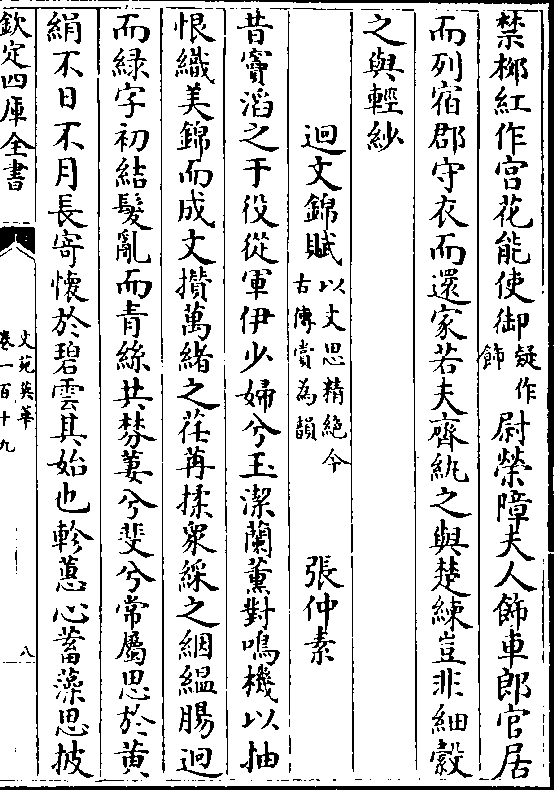 禁柳紅作宫花能使御疑作飾尉榮障夫人飾車郎官居
而列宿郡守衣而還家若夫齊紈之與楚練豈非細縠
之與輕紗
迴文錦賦以文思精絶今古傳賞為韻 張仲素
昔竇滔之于役從軍伊少婦兮玉潔蘭薰對鳴機以抽
恨織美錦而成文攅萬緒之荏苒揉衆綵之絪緼腸迴
而緑字初結髮亂而青絲共棼萋兮斐兮常屬思於黄
絹不日不月長寄懷於碧雲其始也軫蕙心蓄藻思披
欽定四庫全書
文苑英華
卷一百十九
八